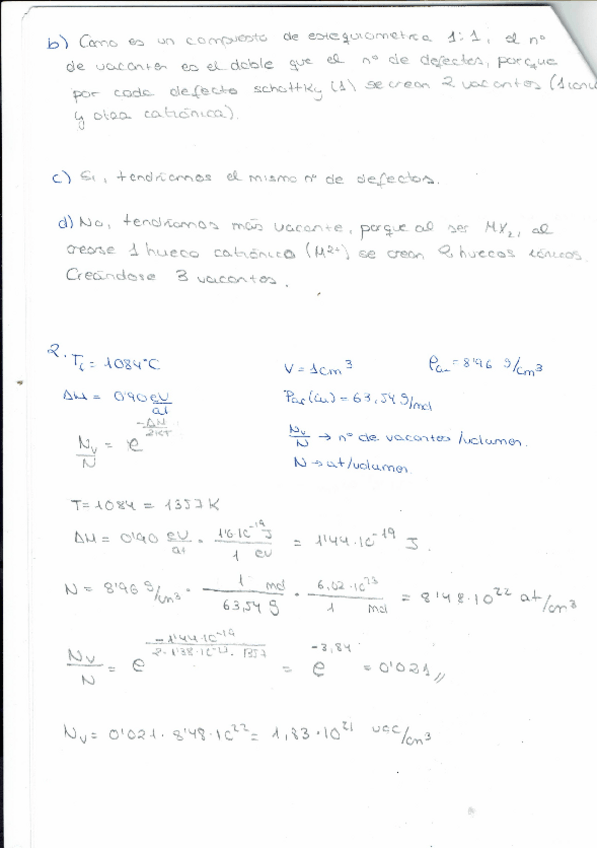 b) Como es un compuesto de estequiometrica 1:1, el nº
de vacantes es el doble que el nº de defectos, porque
por cada defecto schottky (1) se crean 2 vacantes (1
y otra catiónica).
c) Si, tendríamos el mismo nº de defectos.
d) No, tendríamos más vacante, porque al ser MX₂, al
crearse 1 hueco catiónico (M²⁺) se crean 2 huecos iónicos.
Creándose 3 vacantes.
2. Tf = 1084°C V = 1cm³ ρcu = 8'96 g/cm³
ΔH = 0'90 eV/at Par(Cu) = 63,54 g/mol
Nv/N = e^(-ΔH/2KT) Nv/N → nº de vacantes/volumen.
N → at/volumen
T = 1084 = 1357 K
ΔH = 0'90 eV/at · 1'6·10⁻¹⁹ J / 1 eV = 1'44·10⁻¹⁹ J.
N = 8'96 g/cm³ · 1 mol / 63,54 g · 6,02·10²³ / 1 mol = 8'48·10²² at/cm³
Nv/N = e^(-1'44·10⁻¹⁹ / 2·1'38·10⁻²³·1357) = e^(-3,84) = 0'021 //
Nv = 0'021 · 8'48·10²² = 1,83·10²¹ vac/cm³